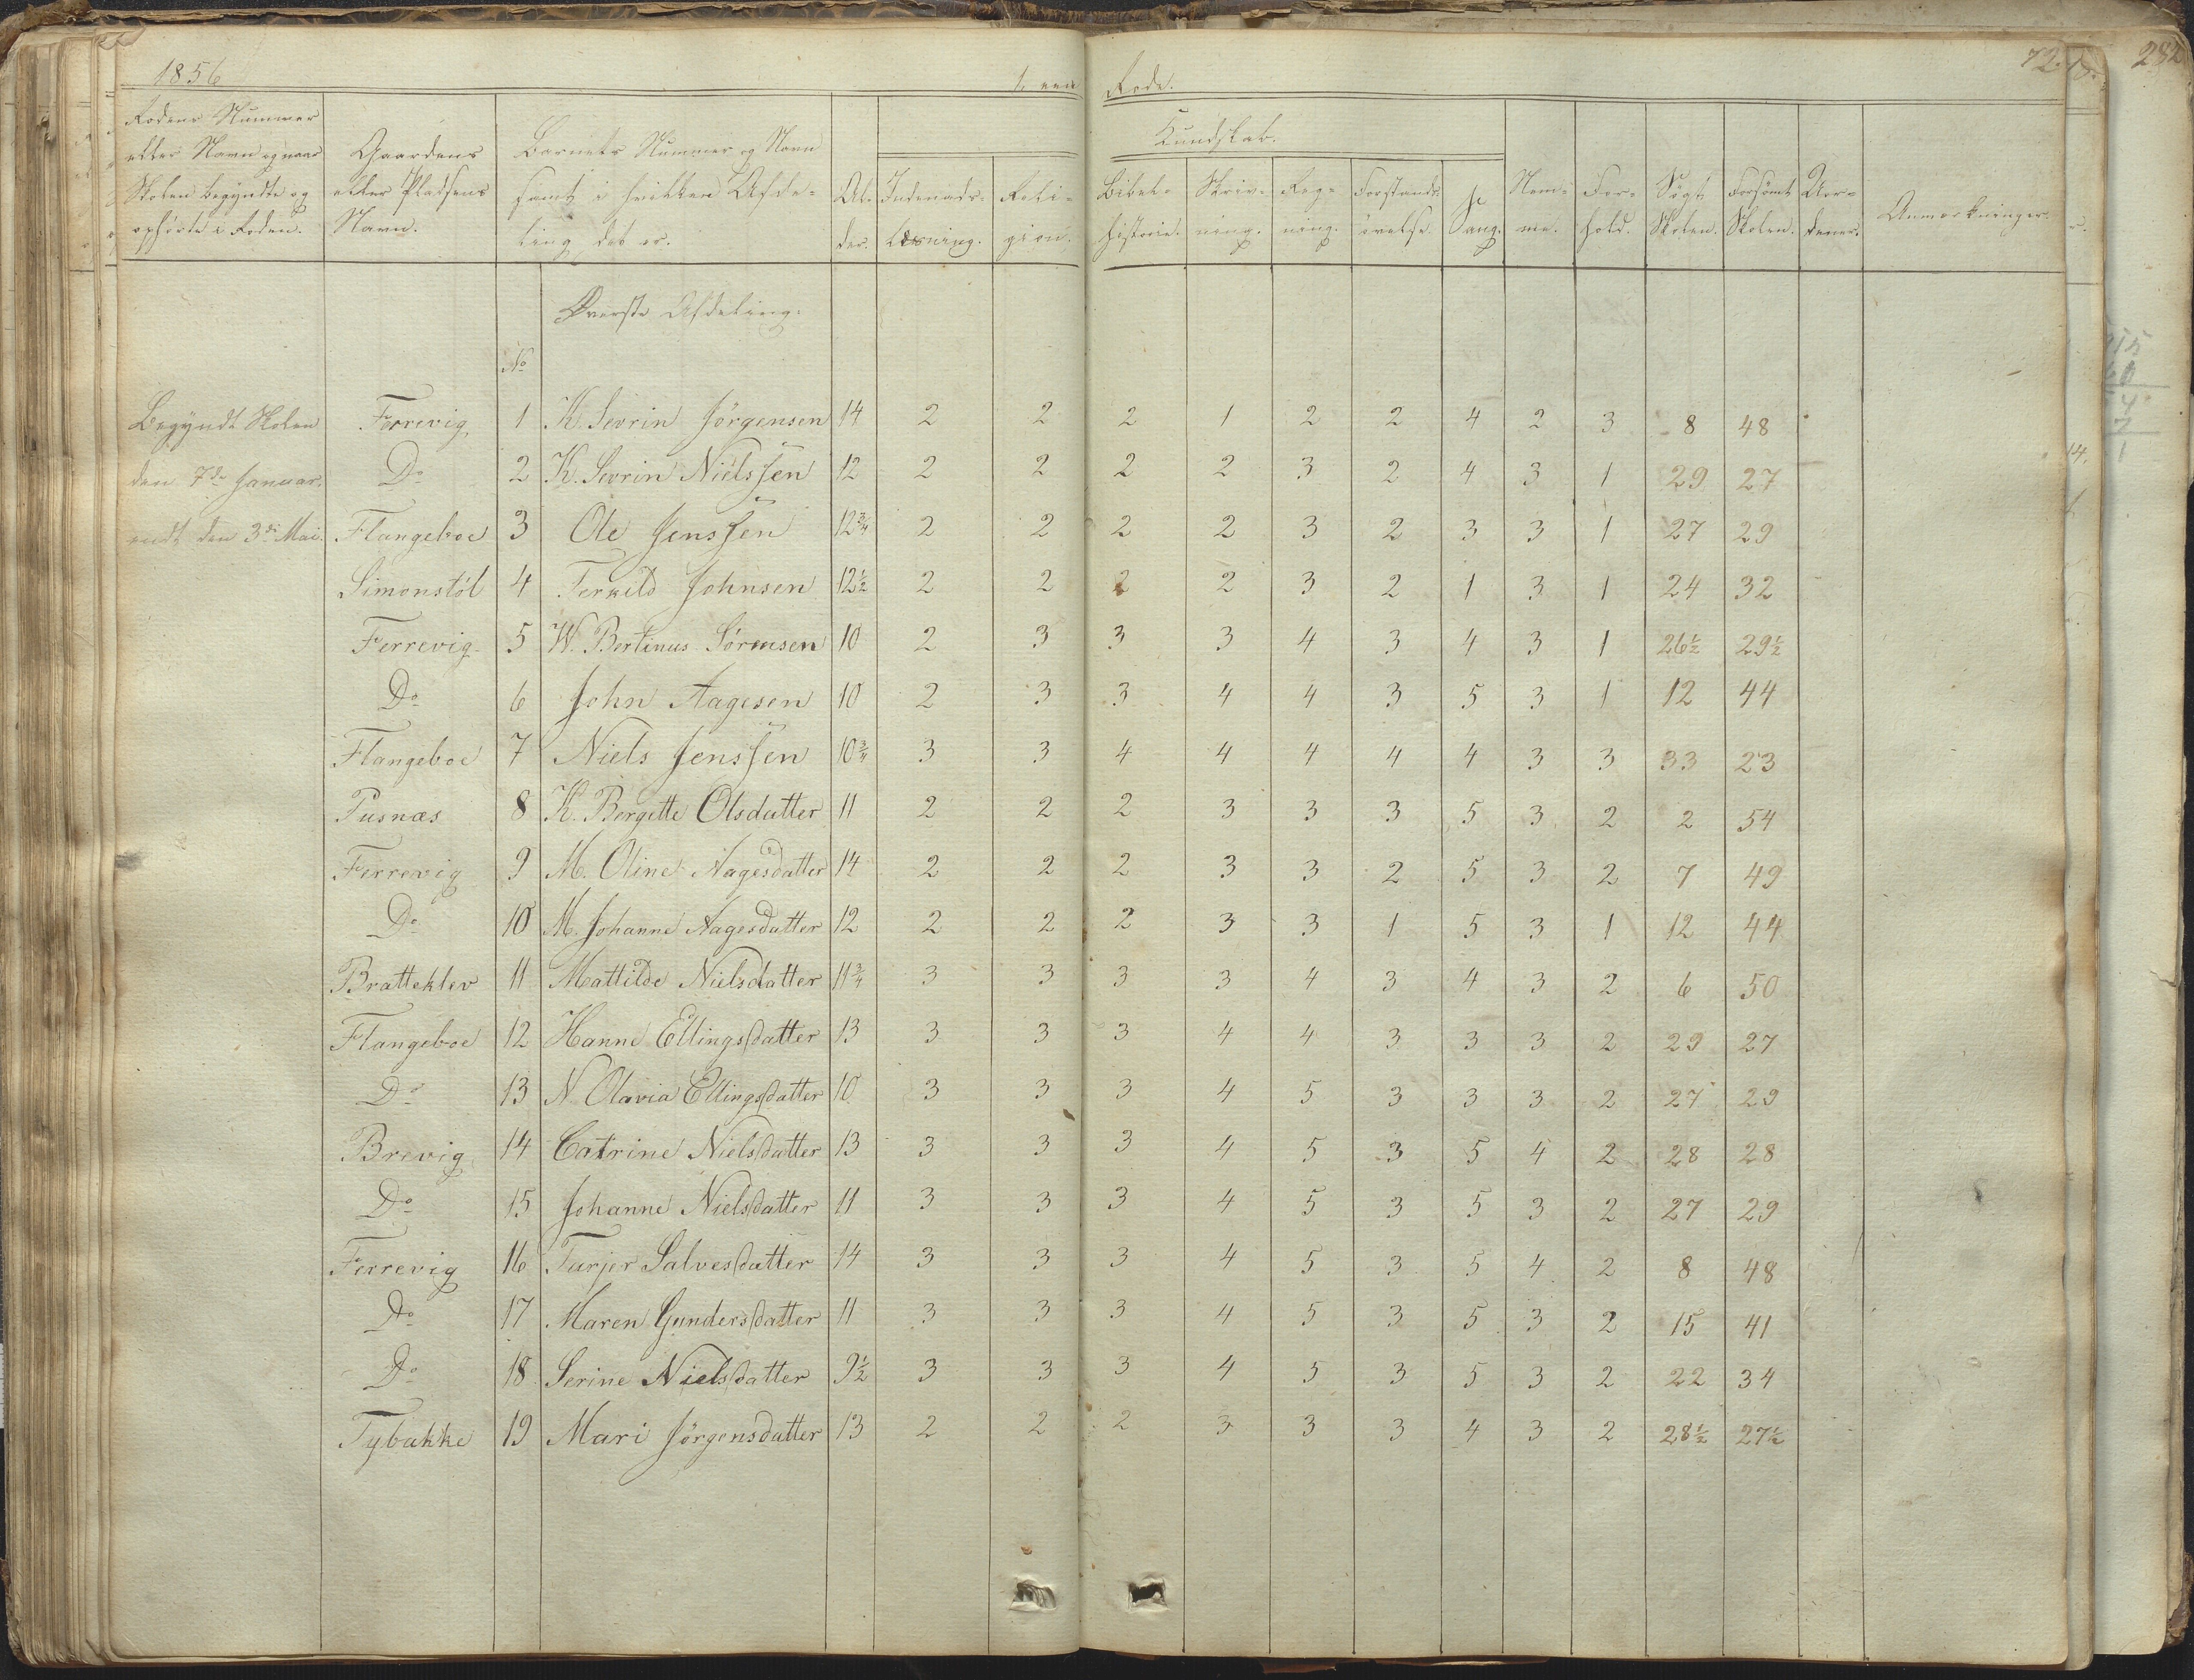 1856 1, een Rode. 72.
282
Rodens Nummer eller Navn og naar Skolen begyndte og ophörte i Roden.
Gaardens eller Pladsens Navn.
Barnets Nummer og Navn samt i hvilken Afdeling det er.
Alder.
Kundskab.
Indenadslæsning.
Religion.
Bibelhistorie.
Skrivning.
Regning.
Forstandsövelse.
Sang.
Nemme.
Forhold.
Sögt Skolen.
Forsömt Skolen.
Anmærkninger.
Överste Afdeling.
No
Begyndt Skolen Ferrevig 1 K. Sevrin Jörgensen 14 2 2 2 1 2 2 4 2 3 8 48
den 7de Januar, Do 2 K. Sevrin Nielssen 12 2 2 2 2 3 2 4 3 1 29 27
endt den 3die Mai. Flangeboe 3 Ole Jenssen 12 3/4 2 2 2 2 3 2 3 3 1 27 29
Simonstöl 4 Terkild Johnsen 12 1/2 2 2 2 2 3 2 1 3 1 24 32
Ferrevig 5 W. Bertinus Sörensen 10 2 3 3 3 4 3 4 3 1 26 1/2 29 1/2
Do 6 John Aagesen 10 2 3 3 4 4 3 5 3 1 12 44
Flangeboe 7 Niels Jenssen 10 3/4 3 3 4 4 4 4 4 3 3 33 23
Pusnæs 8 K. Bergitte Olsdatter 11 2 2 2 3 3 3 5 3 2 2 54
Ferrevig 9 M. Oline Aagesdatter 14 2 2 2 3 3 2 5 3 2 7 49
Do 10 M. Johanne Aagesdatter 12 2 2 2 3 3 1 5 3 1 12 44
Bratteklev 11 Mattilde Nielsdatter 11 3/4 3 3 3 3 4 3 4 3 2 6 50
Flangeboe 12 Hanne Ellingsdatter 13 3 3 3 4 4 3 3 3 2 29 27
Do 13 N. Olavia Ellingsdatter 10 3 3 3 4 5 3 3 3 2 27 29
Brevig 14 Catrine Nielsdatter 13 3 3 3 4 5 3 5 4 2 28 28
Do 15 Johanne Nielsdatter 11 3 3 3 4 5 3 5 3 2 27 29
Ferrevig 16 Tarjer Salvesdatter 14 3 3 3 4 5 3 5 4 2 8 48
Do 17 Maren Gundersdatter 11 3 3 3 4 5 3 5 3 2 15 41
Do 18 Serine Nielsdatter 9 1/2 3 3 3 4 5 3 5 3 2 22 34
Tybakke 19 Mari Jörgensdatter 13 2 2 2 3 3 3 4 3 2 28 1/2 27 1/2